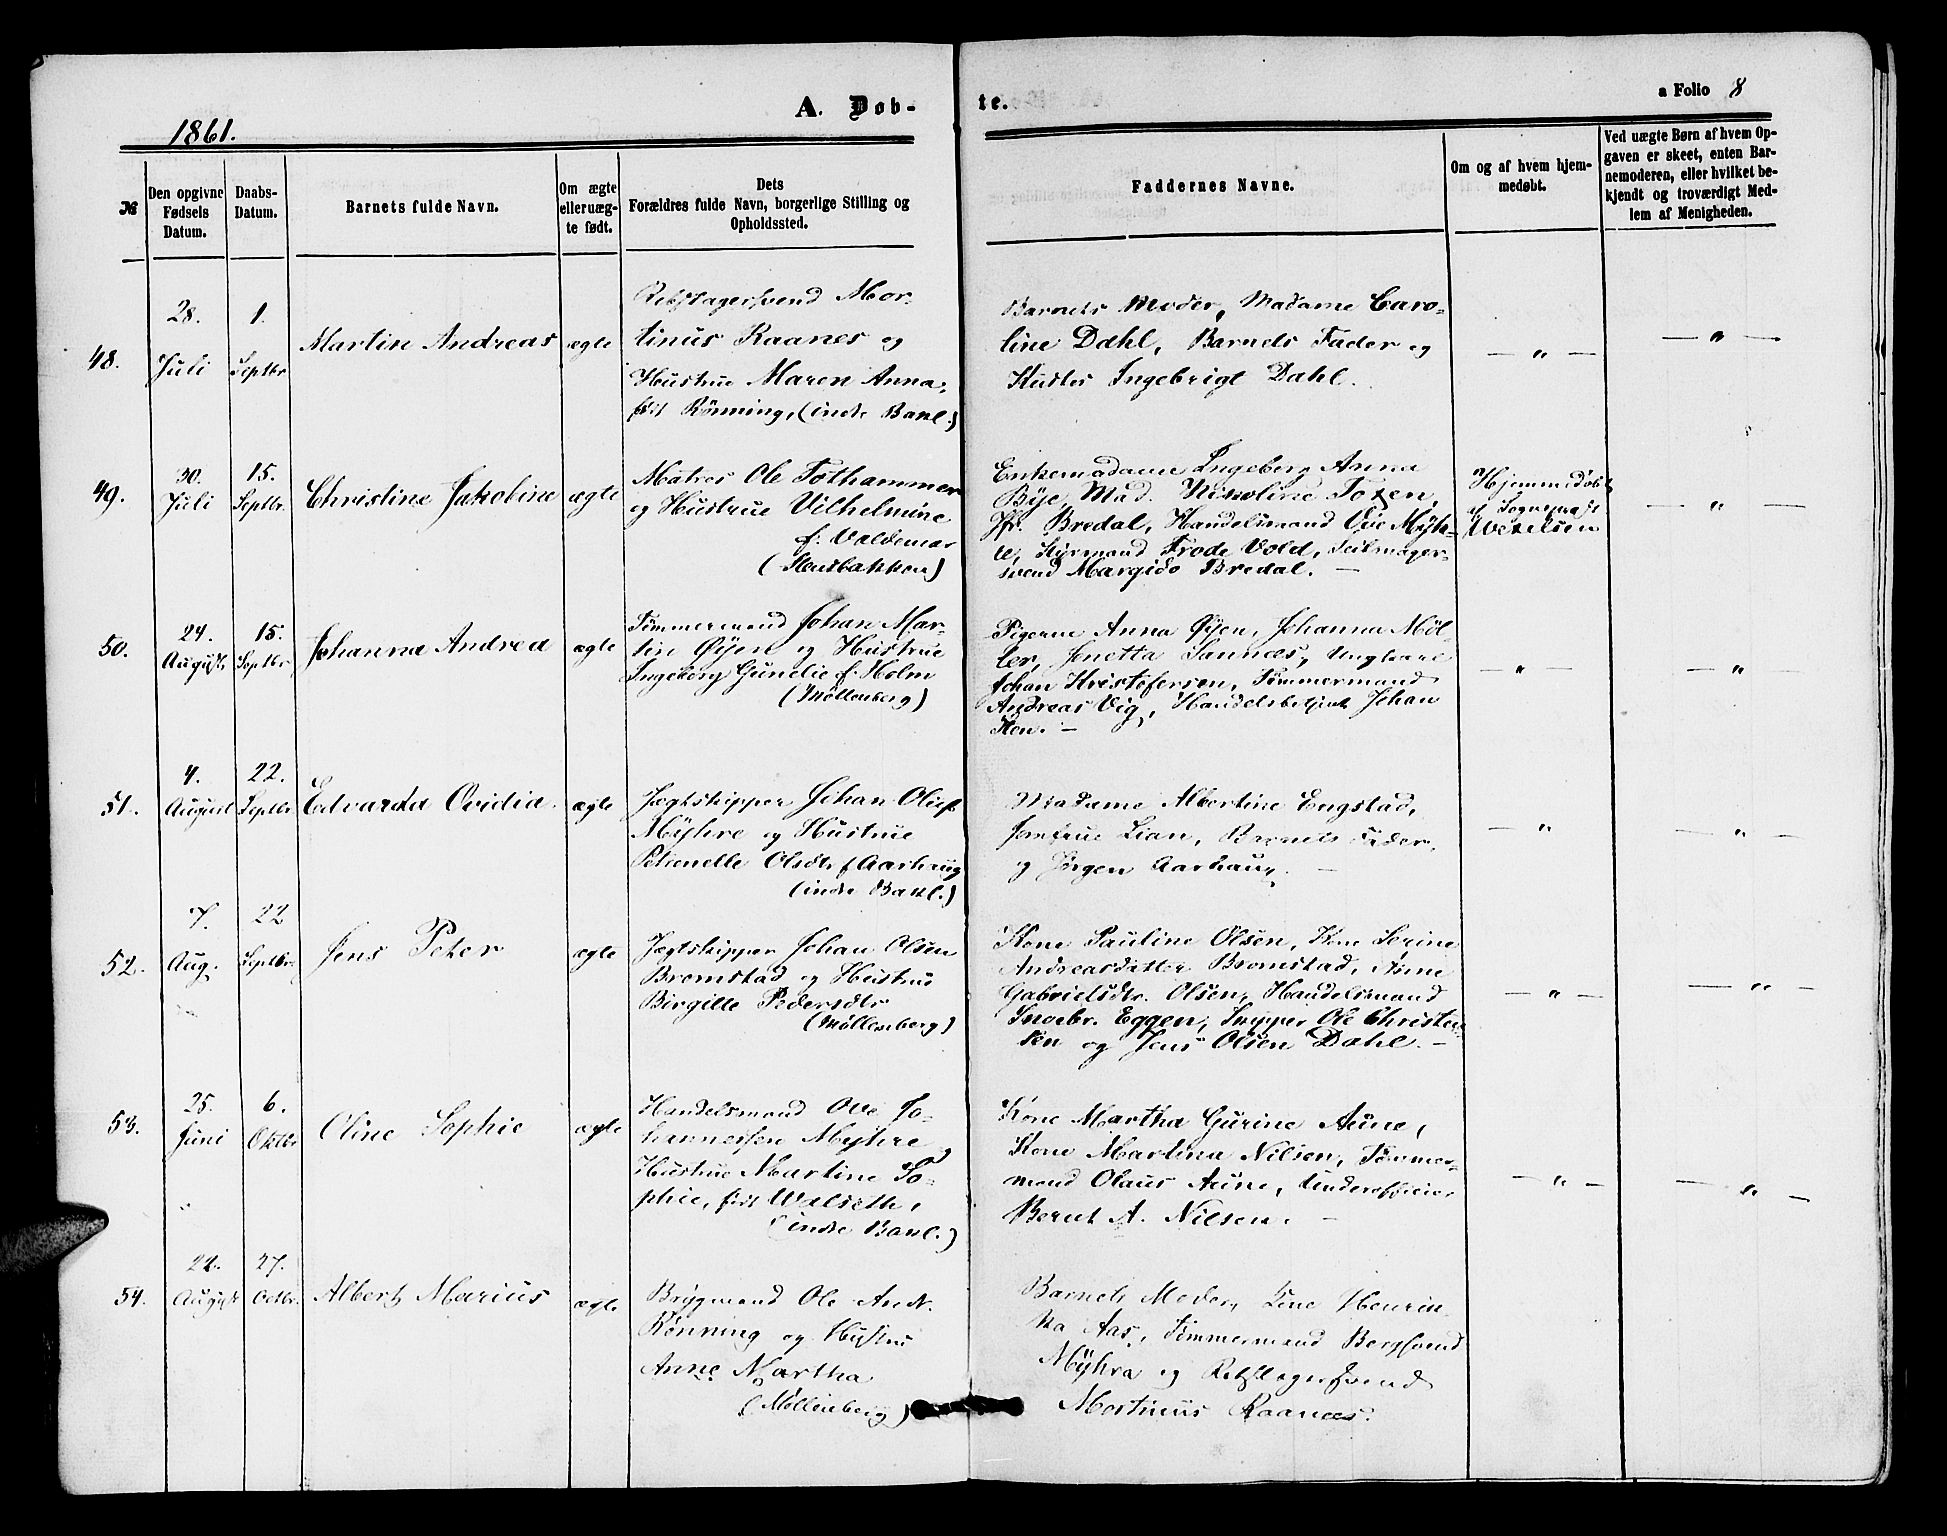 A. Døb-
te.
a Folio 8
1861.
№
Den opgivne
Fødsels
Datum.
Daabs-
Datum.
Barnets fulde Navn.
Om ægte
eller uæg-
te født.
Dets
Forældres fulde Navn, borgerlige Stilling og
Opholdssted.
Faddernes Navne.
Om og af hvem hjem-
medøbt.
Ved uægte Børn af hvem Op-
gaven er skeet, enten Bar-
nemoderen, eller hvilket be-
kjendt og troværdigt Med-
lem af Menigheden.
48.
28.
Juli
1.
Septbr
Martin Andreas
ægte
Rebslagersvend Mor-
tinus Raanes og
Hustrue Maren Anna,
født Rønning, (indr Bakl.)
Barnets Moder, Madame Caro-
line Dahl, Barnets Fader og
Kudsk Ingebrigt Dahl.
— " —
— " —
49.
30.
Juli
15.
Septbr.
Christine Jakobine
ægte
Matros Ole Fothammer
og Hustrue Vilhelmine
f. Valdemar
(Stensbakken)
Enkemadame Ingeborg Anna
Bye, Mad. Nikoline Foxen,
Jfr. Bredal, Handelsmand Ove Myh-
re, Styrmand Frode Vold, Seilmager-
svend Margido Bredal. —
Hjemmedøbt
af Sognepræst
Wexelsen
— " —
50.
24.
August
15.
Septbr
Johanna Andrea
ægte
Tømmermand Johan Mar-
tin Øyen og Hustrue
Ingeborg Gunelie f. Holm
(Møllenberg)
Pigerne Anna Øyen, Johanna Møl-
ler, Jonetta Sannæs, Ungkarl
Johan Kristofersen, Tømmermand
Andreas Vig, Handelsbetjent Johan
Sten. —
— " —
"
51.
4.
August
22.
Septbr
Edvarda Ovidia.
ægte
Jægtskipper Johan Olief
Myhre og Hustrue
Petronelle Olsdtr. f. Aarhaug
(indre Bakl.)
Madame Albertine Engstad,
Jomfrue Lian, Barnets Fader
og Jørgen Aarhaug. —
— " —
— " —
52.
7.
Aug.
22
Septbr
Jens Peter
ægte
Jægtskipper Johan Olsen
Bromstad og Hustrue
Birgitte Pedersdtr
(Møllenberg)
Kone Pauline Olsen, Kone Serine
Andreasdatter Bromstad, Anne
Gabrielsdtr. Olsen, Handelsmand
Ingebr. Eggen, Skipper Ole Christen-
sen og Jens Olsen Dahl. —
— " —
— " —
53.
25.
Juni
6.
Oktbr
Oline Sophie
ægte
Handelsmand Ove Jo-
hannessen Myhre og
Hustrue Martine So-
phie, født Walseth,
(indre Bakl.)
Kone Martha Gurine Aune,
Kone Martina Nilsen, Tømmer-
mand Olaus Aune, Underofficier
Bernt A. Nilsen. —
— " —
— " —
54.
22.
August
27.
Octbr.
Albert Marius
ægte
Brygmand Ole Andr.
Rønning og Hustru
Anne Martha
(Møllenberg)
Barnets Moder, Line Henrik-
ka Aas, Tømmermand Bergsvend
Myhra og Rebslagersvend
Martinus Raanæs.